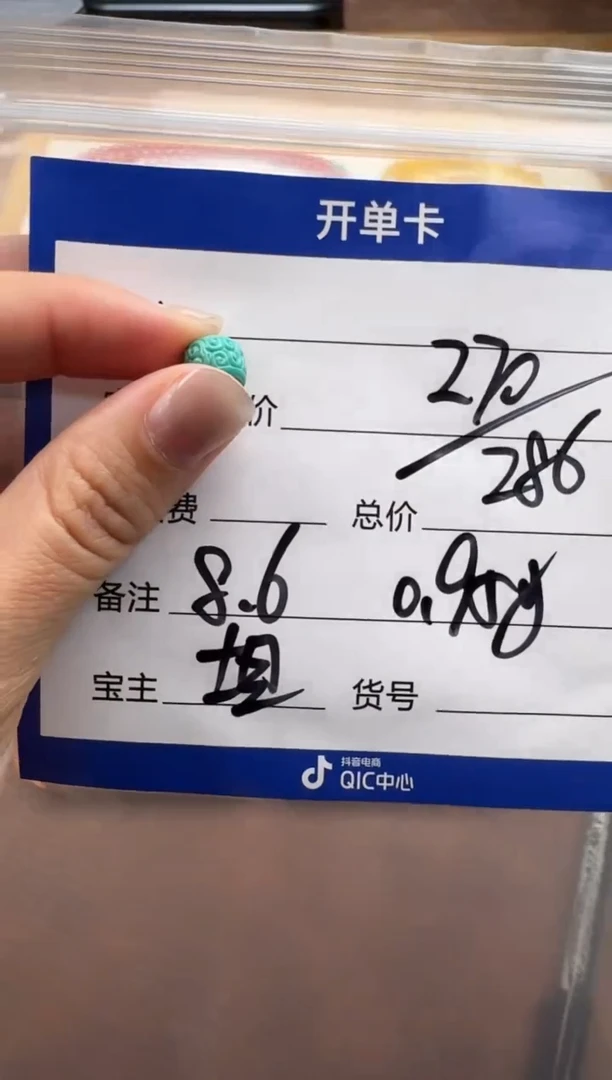 开单卡
270
价
286
费 总价
备注 8.6 0.95g
宝主 货号
抖音电商
QIC中心